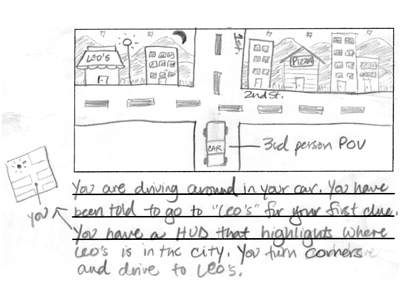 LEO'S
1st.
PIZZA
2nd St.
CAR
3rd person POV
you
You are driving around in your car. You have
been told to go to "Leo's" for your first clue.
You have a HUD that highlights where
Leo's is in the city. You turn corners
and drive to Leo's.